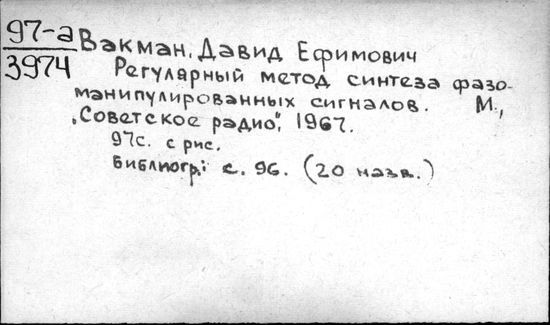 97-а
3974
Вакман, Давид Ефимович
Регулярный метод синтеза фазо-
манипулированных сигналов. М.,
„Советское радио", 1967.
97с. с рис.
Библиогр.: с. 96. (20 назв.)